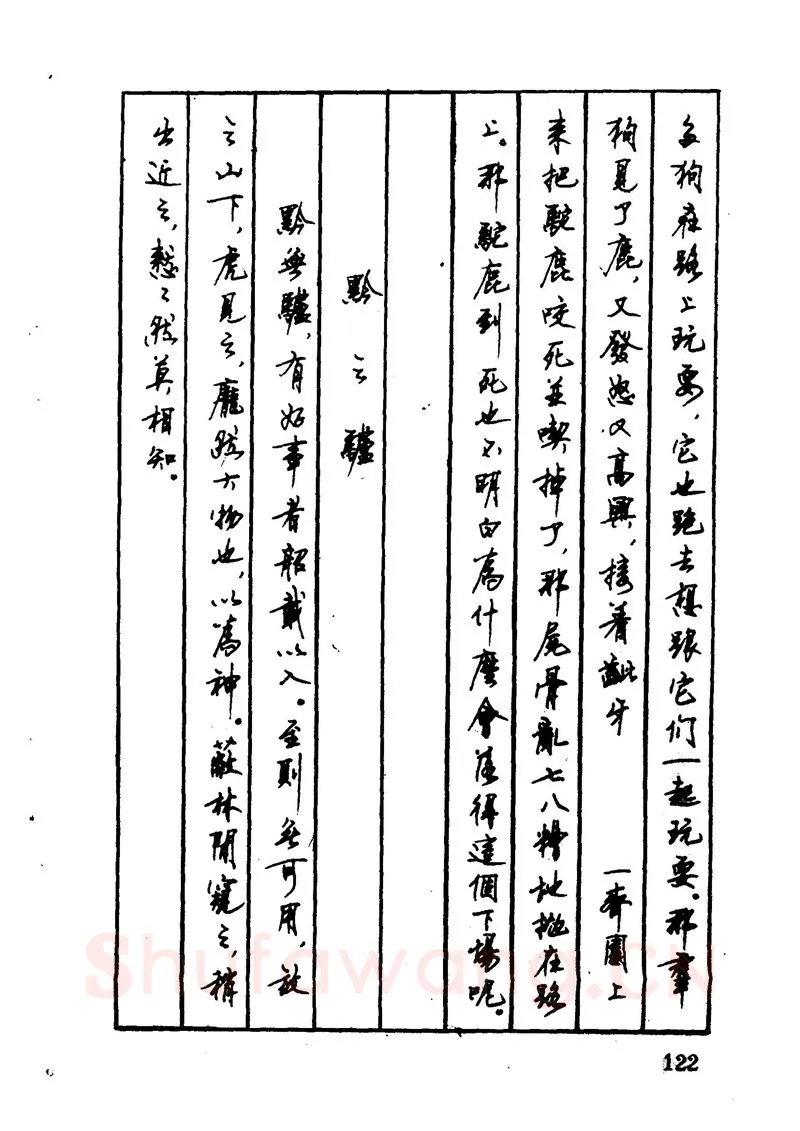 多狗在路上玩耍，它也跑去想跟它们一起玩耍。那羣
狗見了鹿，又發怒又高興，接着齜牙 一齊圍上
来把駝鹿咬死並喫掉了，那尾骨亂七八糟地抛在路
上。那駝鹿到死也不明白為什麼會落得這個下場呢。
黔之驢
黔無驢，有好事者船載以入。至則無可用，放
之山下，虎見之，龐然大物也，以為神。蔽林間窺之，稍
出近之，憖〻然莫相知。
Shufawang.CN
122